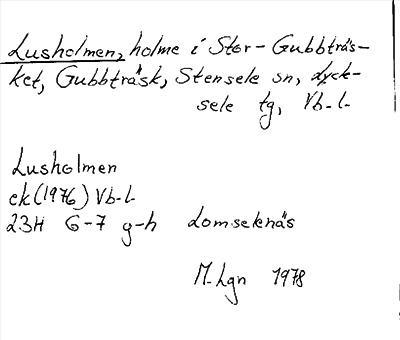 Lusholmen, holme i Stor-Gubbträs-
ket, Gubbträsk, Stensele sn, Lyck-
sele tg, Vb-l.
Lusholmen
ek (1976) Vb-l.
23H 6-7 g-h Lomseknäs
M. Lgn 1978